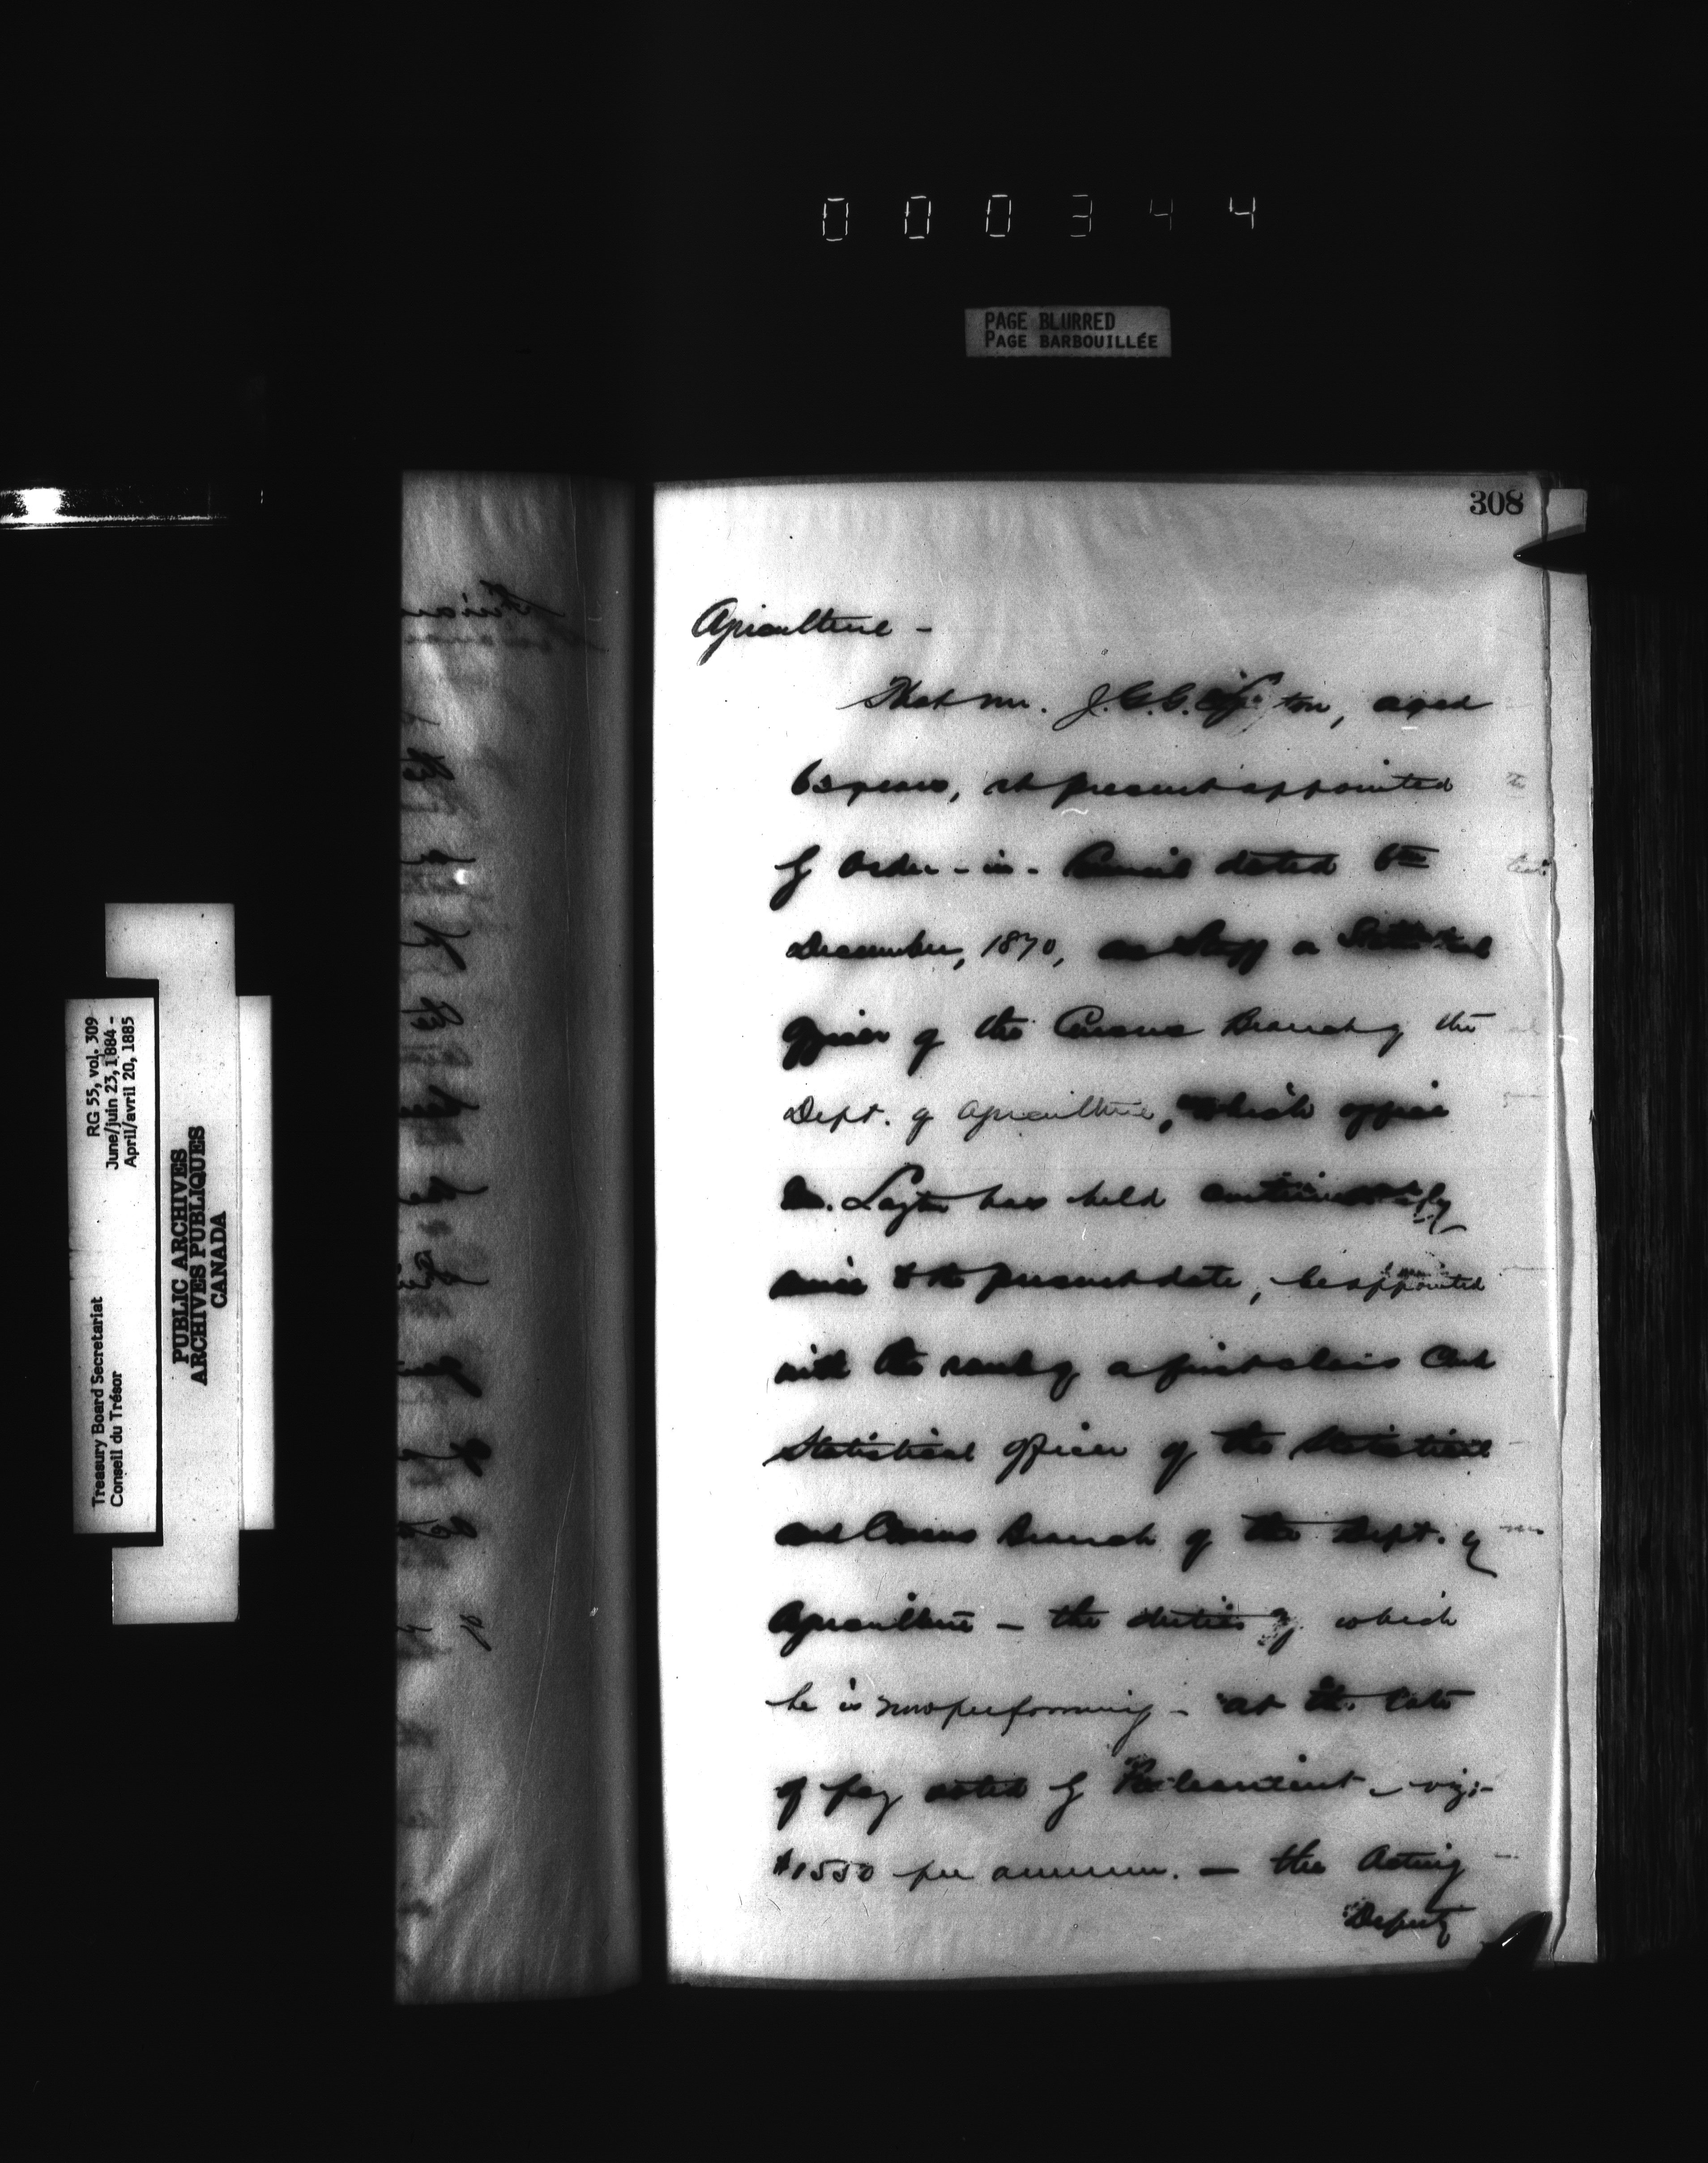 000344
PAGE BLURRED
PAGE BARBOUILLÉE
308
Agriculture -
That Mr. J. C. G. Layton, aged
63 years, at present appointed
by Order-in-Council dated 6th
December, 1870, as Staff a Statistical
Officer of the Census Branch of the
Dept. of Agriculture, which office
Mr. Layton has held continuously
since to the present date, be appointed
with the rank of a first class Clerk
Statistical Officer of the Statistical
and Census Branch of the Dept. of
Agriculture — the duties of which
he is now performing - at the rate
of pay voted by Parliament - viz:-
$1550 per annum. — the Acting
Deputy
RG 55, vol. 309
June/juin 23, 1884 -
April/avril 20, 1885
Treasury Board Secretariat
Conseil du Trésor
PUBLIC ARCHIVES
ARCHIVES PUBLIQUES
CANADA